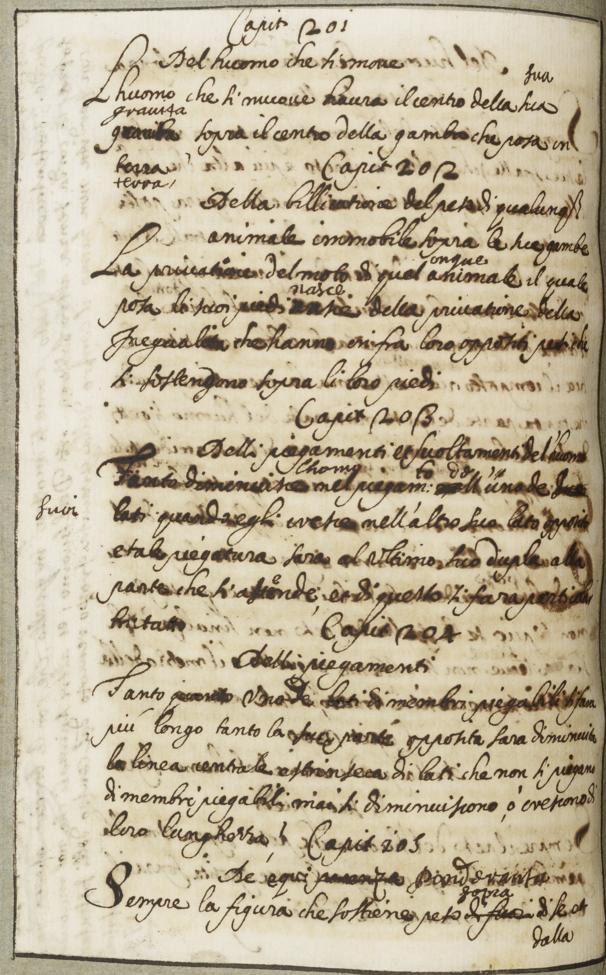 Capit 201
Del huomo che si move
sua
L huomo che si muove havra il centro della sua
gravita
sopra il centro della gamba che posa in
terra
terra
Capit 202
Della billicatione del peso di qualunqs
animale immobile sopra le sue gambe
onque
La privatione del moto di quel animale il quale
nasce
posa li suoi piedi nasce della privatione della
Inegualita che hanno infra loro oppositi pesi che
si sostengono sopra li loro piedi
Capit 203
Delli piegamenti et svoltamenti del huomo
lhomo to de
Tanto diminuisce nel piegam: uno de
suoi
lati quand egli cresce nell'altro suo lato opposito
e tale piegatura sara al ultimo suo dupla alla
parte che si et di questo si fara particular
trattato
Capit 204
Delli piegamenti
Tanto quanto uno de lati di membri piegabili si fara
piu longo tanto la sua parte opposita sara diminuita
la linea centrale estrinseca di lati che non si piegano
di membri piegabili mai si diminuiscono o crescono di
loro lunghezza
Capit 205
De equi ponderanza
sopra
Sempre la figura che sostiene peso di se et
dalla